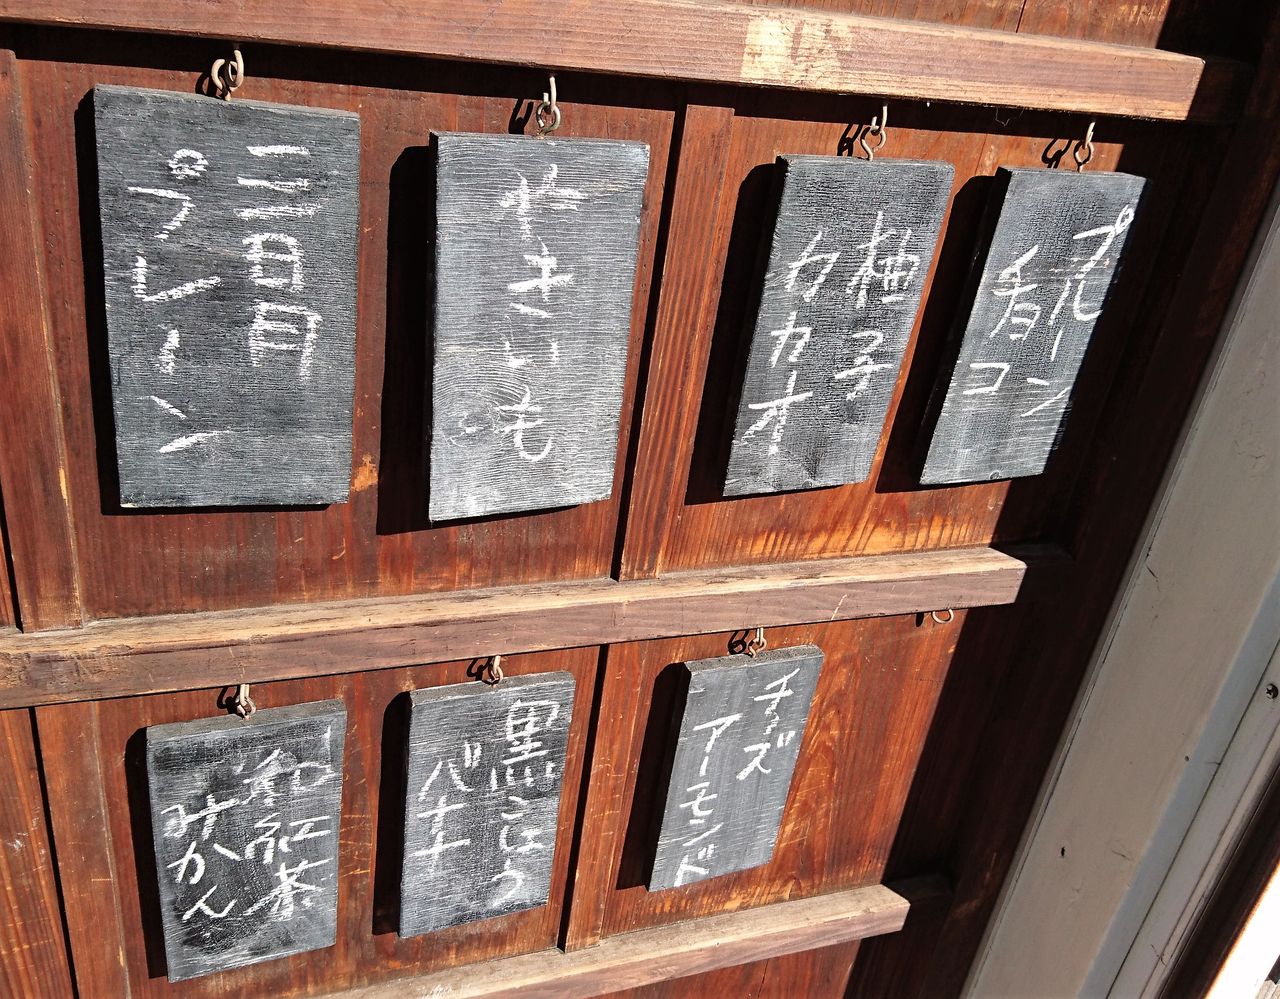 三日月
プレーン
やきいも
柚子
カカオ
プルーン
チョコ
和紅茶
みかん
黒こしょう
バナナ
チーズ
アーモンド